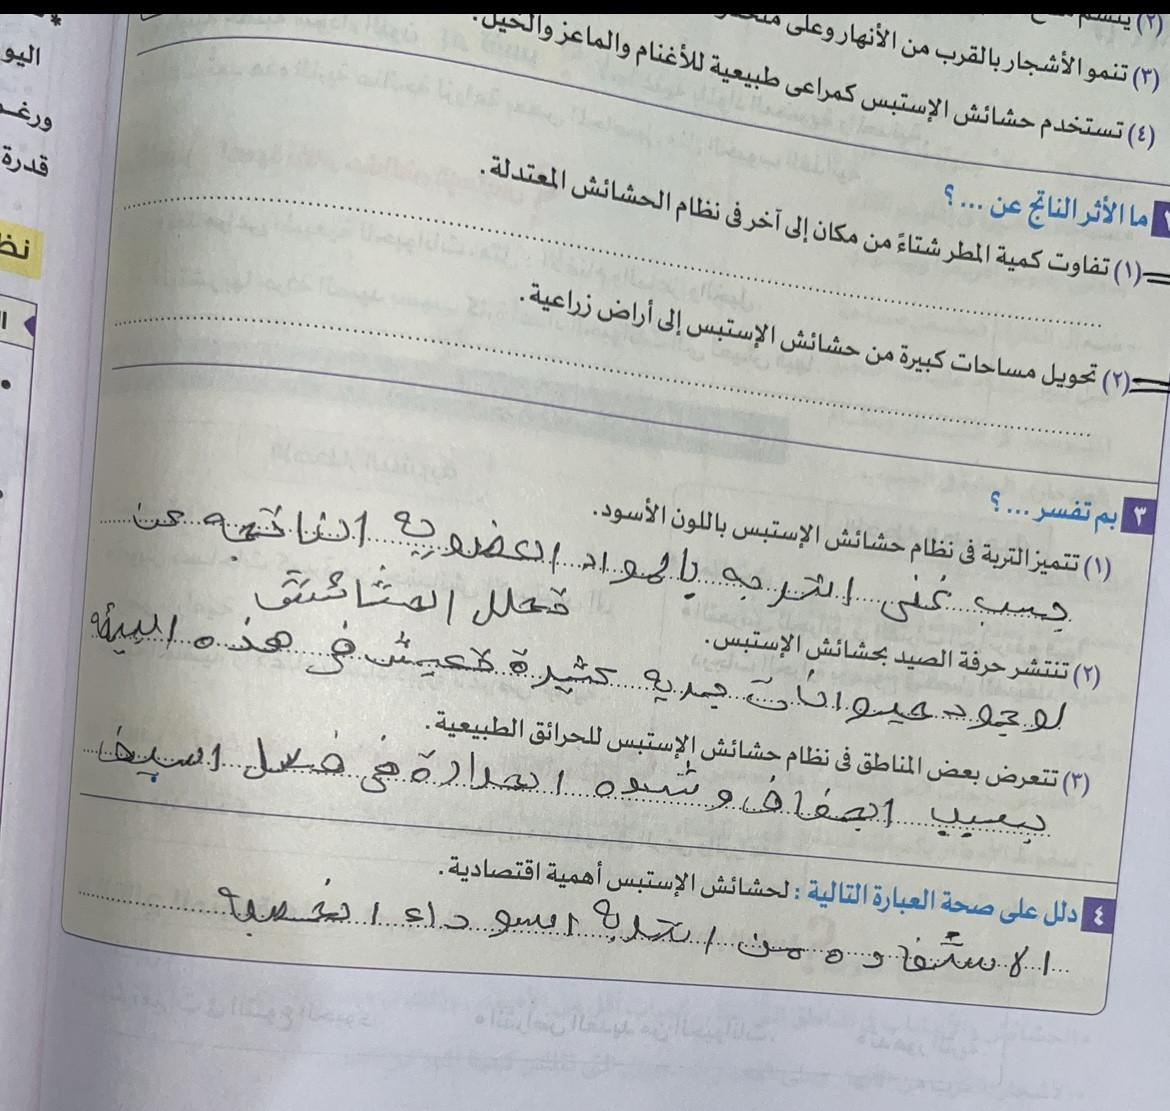 (٢) يتسم
(٣) تنمو الأشجار بالقرب من الأنهار وعلى
(٤) تستخدم حشائش الإستبس كمراعى طبيعية للأغنام والماعز والخيل.
ما الأثر الناتج عن ... ؟
(١) تفاوت كمية المطر شتاءً من مكان إلى آخر فى نظام الحشائش المعتدلة.
(٢) تحويل مساحات كبيرة من حشائش الإستبس إلى أراض زراعية.
٣ بم تفسر ... ؟
(١) تتميز التربة فى نظام حشائش الإستبس باللون الأسود.
بسبب غنى التربه بالمواد العضويه الناتجه عن
تحلل الحشائش
(٢) تنتشر حرفة الصيد بحشائش الإستبس.
لوجود حيوانات بريه كثيرة تعيش فى هذه البيئه
(٣) تتعرض بعض المناطق فى نظام حشائش الإستبس للحرائق الطبيعية.
بسبب الجفاف وشده الحرارة فى فصل الصيف
٤ دلل على صحة العبارة التالية : لحشائش الإستبس أهمية اقتصادية.
الاستفاده من التربه السوداء الخصبه
اليو
ورغـ
قدرة
نظ